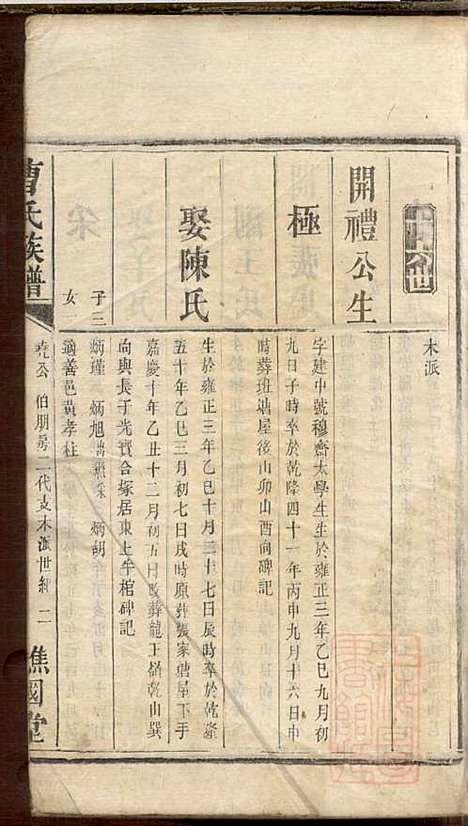 十六世
木派
開禮公生
極
字建中號穆齋太學生生於雍正三年乙巳九月初
九日子時卒於乾隆四十一年丙申九月十六日申
時葬班塘屋後山卯山酉向碑記
娶陳氏
生於雍正三年乙巳十月二十七日辰時卒於乾隆
五十年乙巳三月初七日戌時原葬張家塘屋下手
嘉慶十年乙丑十二月初五日改葬龍王嶺乾山巽
向與長子光實合塚居東上牟棺碑記
子三
炳瑾 炳旭 炳胡
女
適善邑黃孝柱
曹氏族譜
堯公 伯朋房二代支木派世紀 二
譙國堂